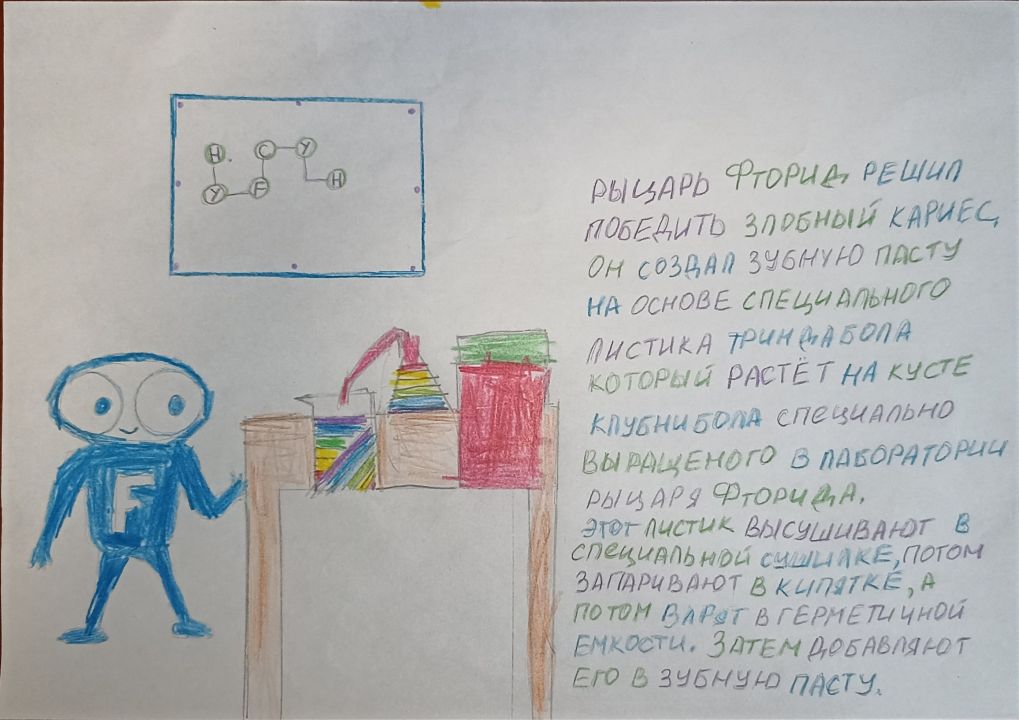 Н С У
У F Н
F
РЫЦАРЬ ФТОРИД РЕШИЛ
ПОБЕДИТЬ ЗЛОБНЫЙ КАРИЕС,
ОН СОЗДАЛ ЗУБНУЮ ПАСТУ
НА ОСНОВЕ СПЕЦИАЛЬНОГО
ЛИСТИКА ТРИНДАБОЛА
КОТОРЫЙ РАСТЁТ НА КУСТЕ
КЛУБНИБОЛА СПЕЦИАЛЬНО
ВЫРАЩЕНОГО В ЛАБОРАТОРИИ
РЫЦАРЯ ФТОРИДА.
ЭТОТ ЛИСТИК ВЫСУШИВАЮТ В
СПЕЦИАЛЬНОЙ СУШИЛКЕ, ПОТОМ
ЗАПАРИВАЮТ В КИПЯТКЕ, А
ПОТОМ ВАРЯТ В ГЕРМЕТИЧНОЙ
ЕМКОСТИ. ЗАТЕМ ДОБАВЛЯЮТ
ЕГО В ЗУБНУЮ ПАСТУ.